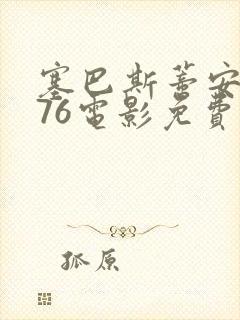 塞巴斯蒂安
76電影免費
孤原